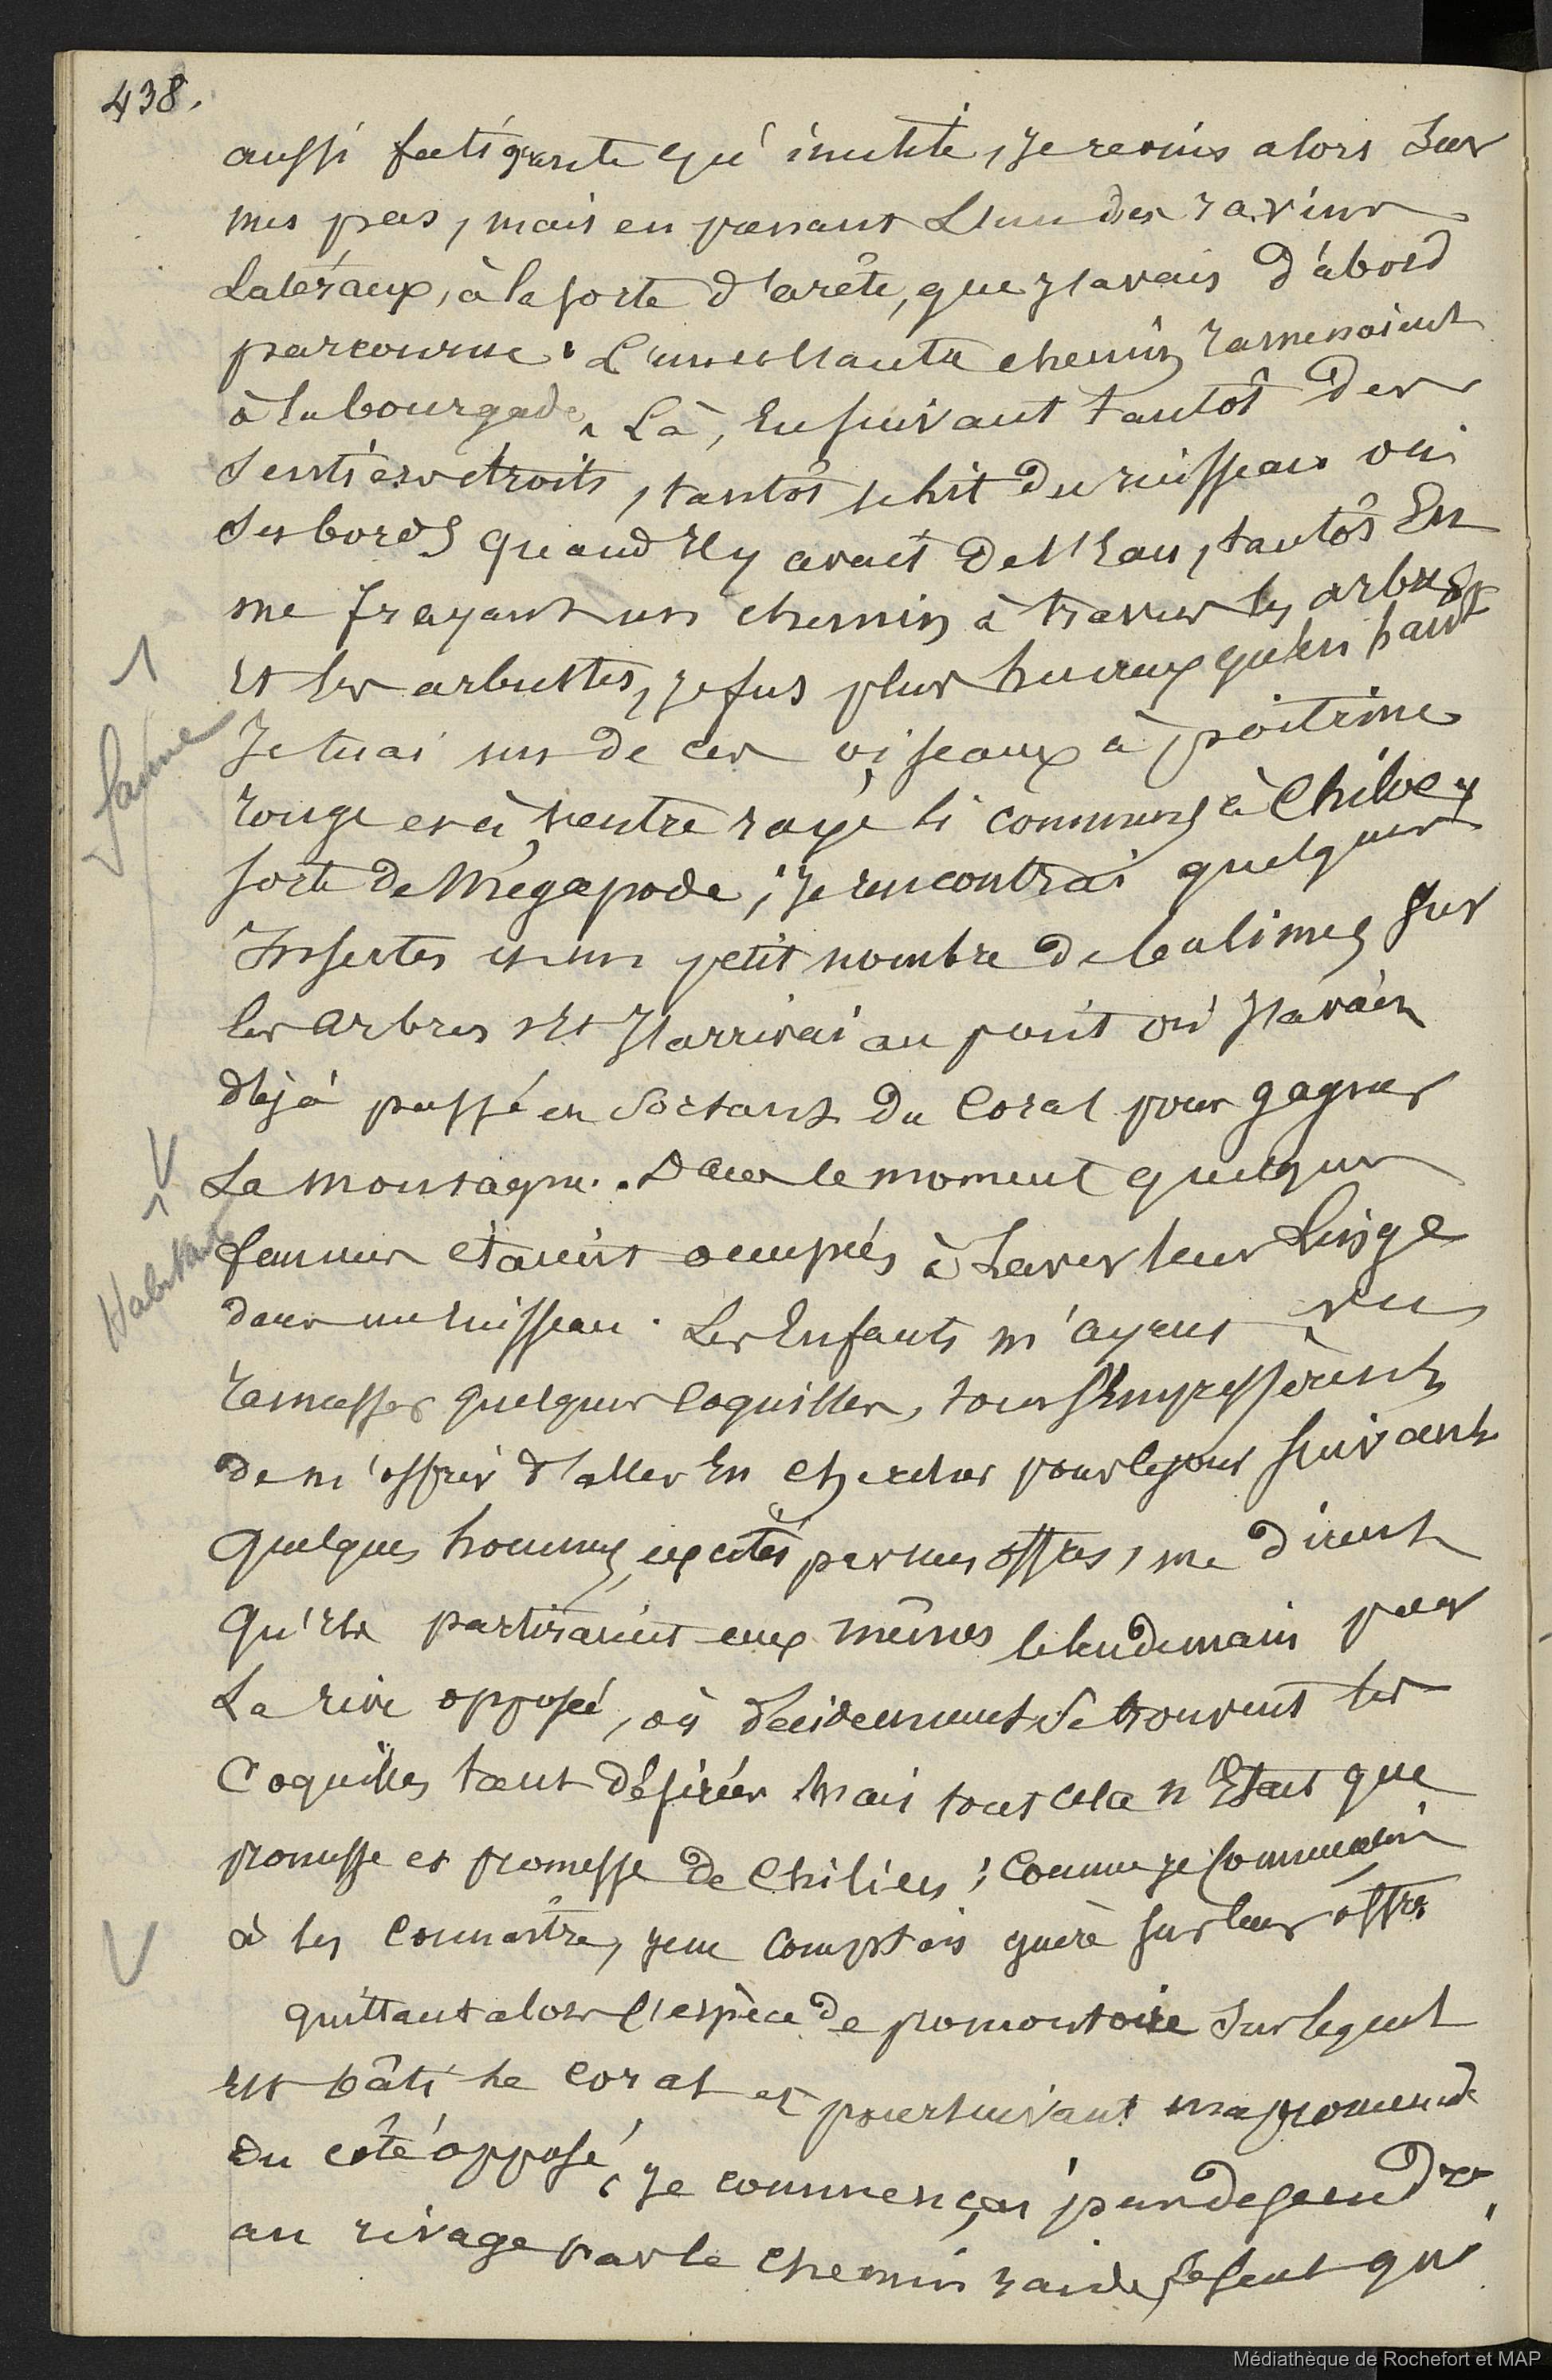 438.
aussi fatigante qu'inutile, je revins alors sur
mes pas, mais en prenant l'un des ravins
latéraux, à la sorte d'arête, que j'avais d'abord
parcourue. L'un et l'autre chemin ramenaient
à la bourgade. Là, en suivant tantôt des
sentiers etroits, tantôt le lit du ruisseau ou
ses bords quand il y avait de l'eau, tantôt en
me frayant un chemin à travers les arbres
et les arbustes, je fus plus heureux qu'en haut
Je tuai un de ces oiseaux à poitrine
rouge et à ventre rayé si communs à Chiloe,
sorte de Mégapode, je rencontrai quelques
Insectes et un petit nombre de bulimes sur
les arbres et j'arrivai au point où j'avais
déjà passé en sortant du Coral pour gagner
La montagne. Dans le moment quelques
femmes étaient occupées à laver leur linge
dans un ruisseau. Les Enfants m'ayant vu
ramasser quelques Coquilles, tous s'empressèrent
de m'offrir d'aller en chercher pour le jour suivant
Quelques hommes, excités par mes offres, me dirent
Qu'ils partiraient eux mêmes le lendemain pour
La rive opposée, où décidemment se trouvent les
Coquilles tant désirées Mais tout cela n'était que
promesse et promesse de Chiliens; Comme je commençais
à les connaître, je ne comptais guère sur leurs offres
quittant alors l'espèce de promontoire sur lequel
est bâti le Coral et poursuivant ma promenade
du côté opposé, je commençai par descendre
au rivage par le chemin raide faisant qui
faune
Habitants
Médiathèque de Rochefort et MAP